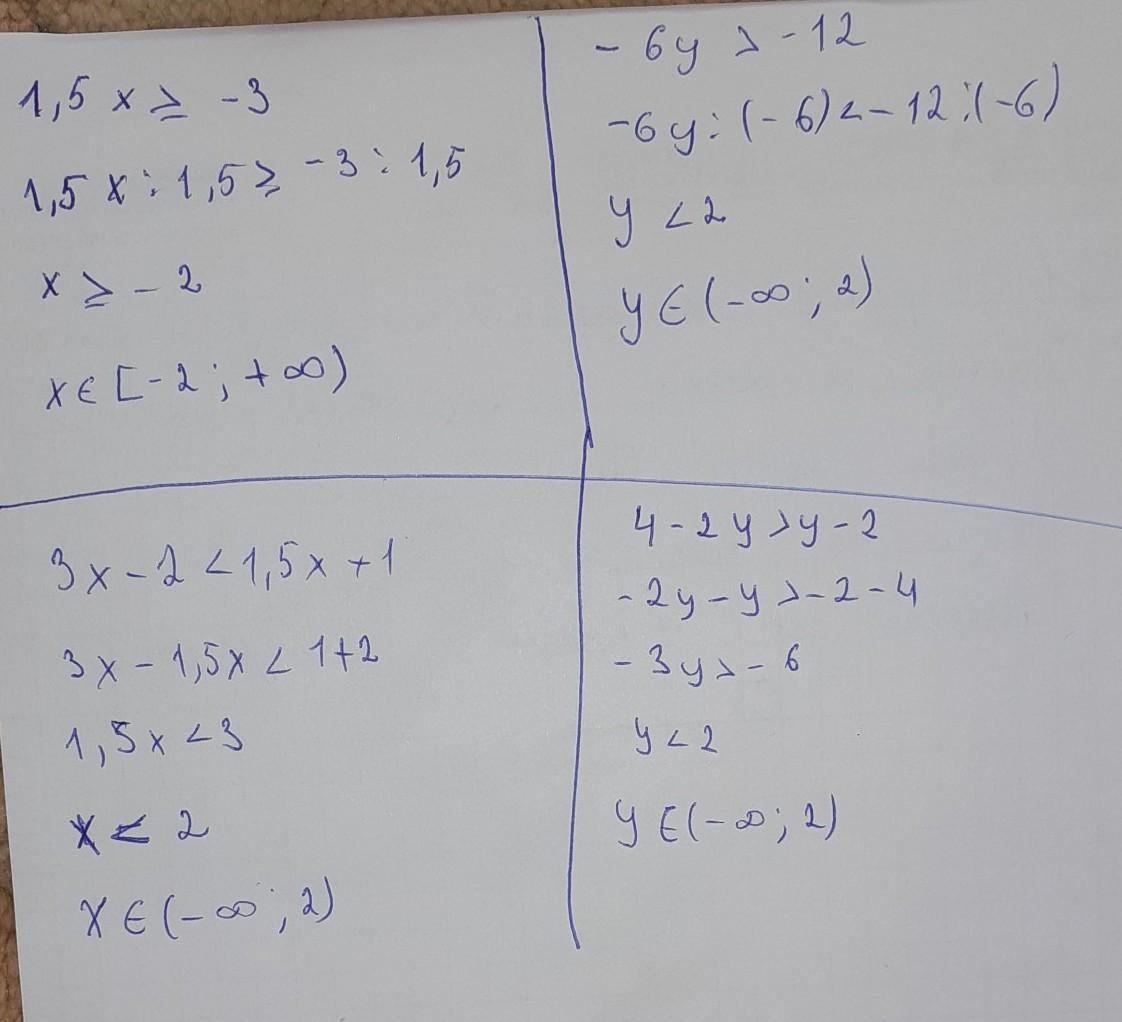 1,5 x ≥ -3
1,5 x : 1,5 ≥ -3 : 1,5
x ≥ - 2
x ∈ [-2 ; +∞)
- 6y > -12
-6y : (-6) < -12 : (-6)
y < 2
y ∈ (-∞ ; 2)
3x - 2 < 1,5x + 1
3x - 1,5x < 1+2
1,5x < 3
x < 2
x ∈ (-∞ ; 2)
4 - 2y > y - 2
- 2y - y > -2 - 4
- 3y > - 6
y < 2
y ∈ (-∞ ; 2)